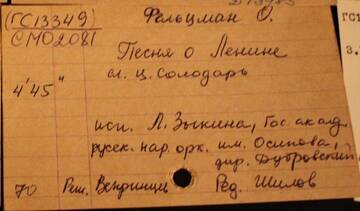 (ГС13349) Фельцман О.
СМ02081
Песня о Ленине
сл. Ц. Солодарь
4'45"
исп. Л. Зыкина, Гос. акад.
русск. нар. орк. им. Осипова,
дир. Дубровский
70 Реж. Ред. Шилов
ГС1
3.